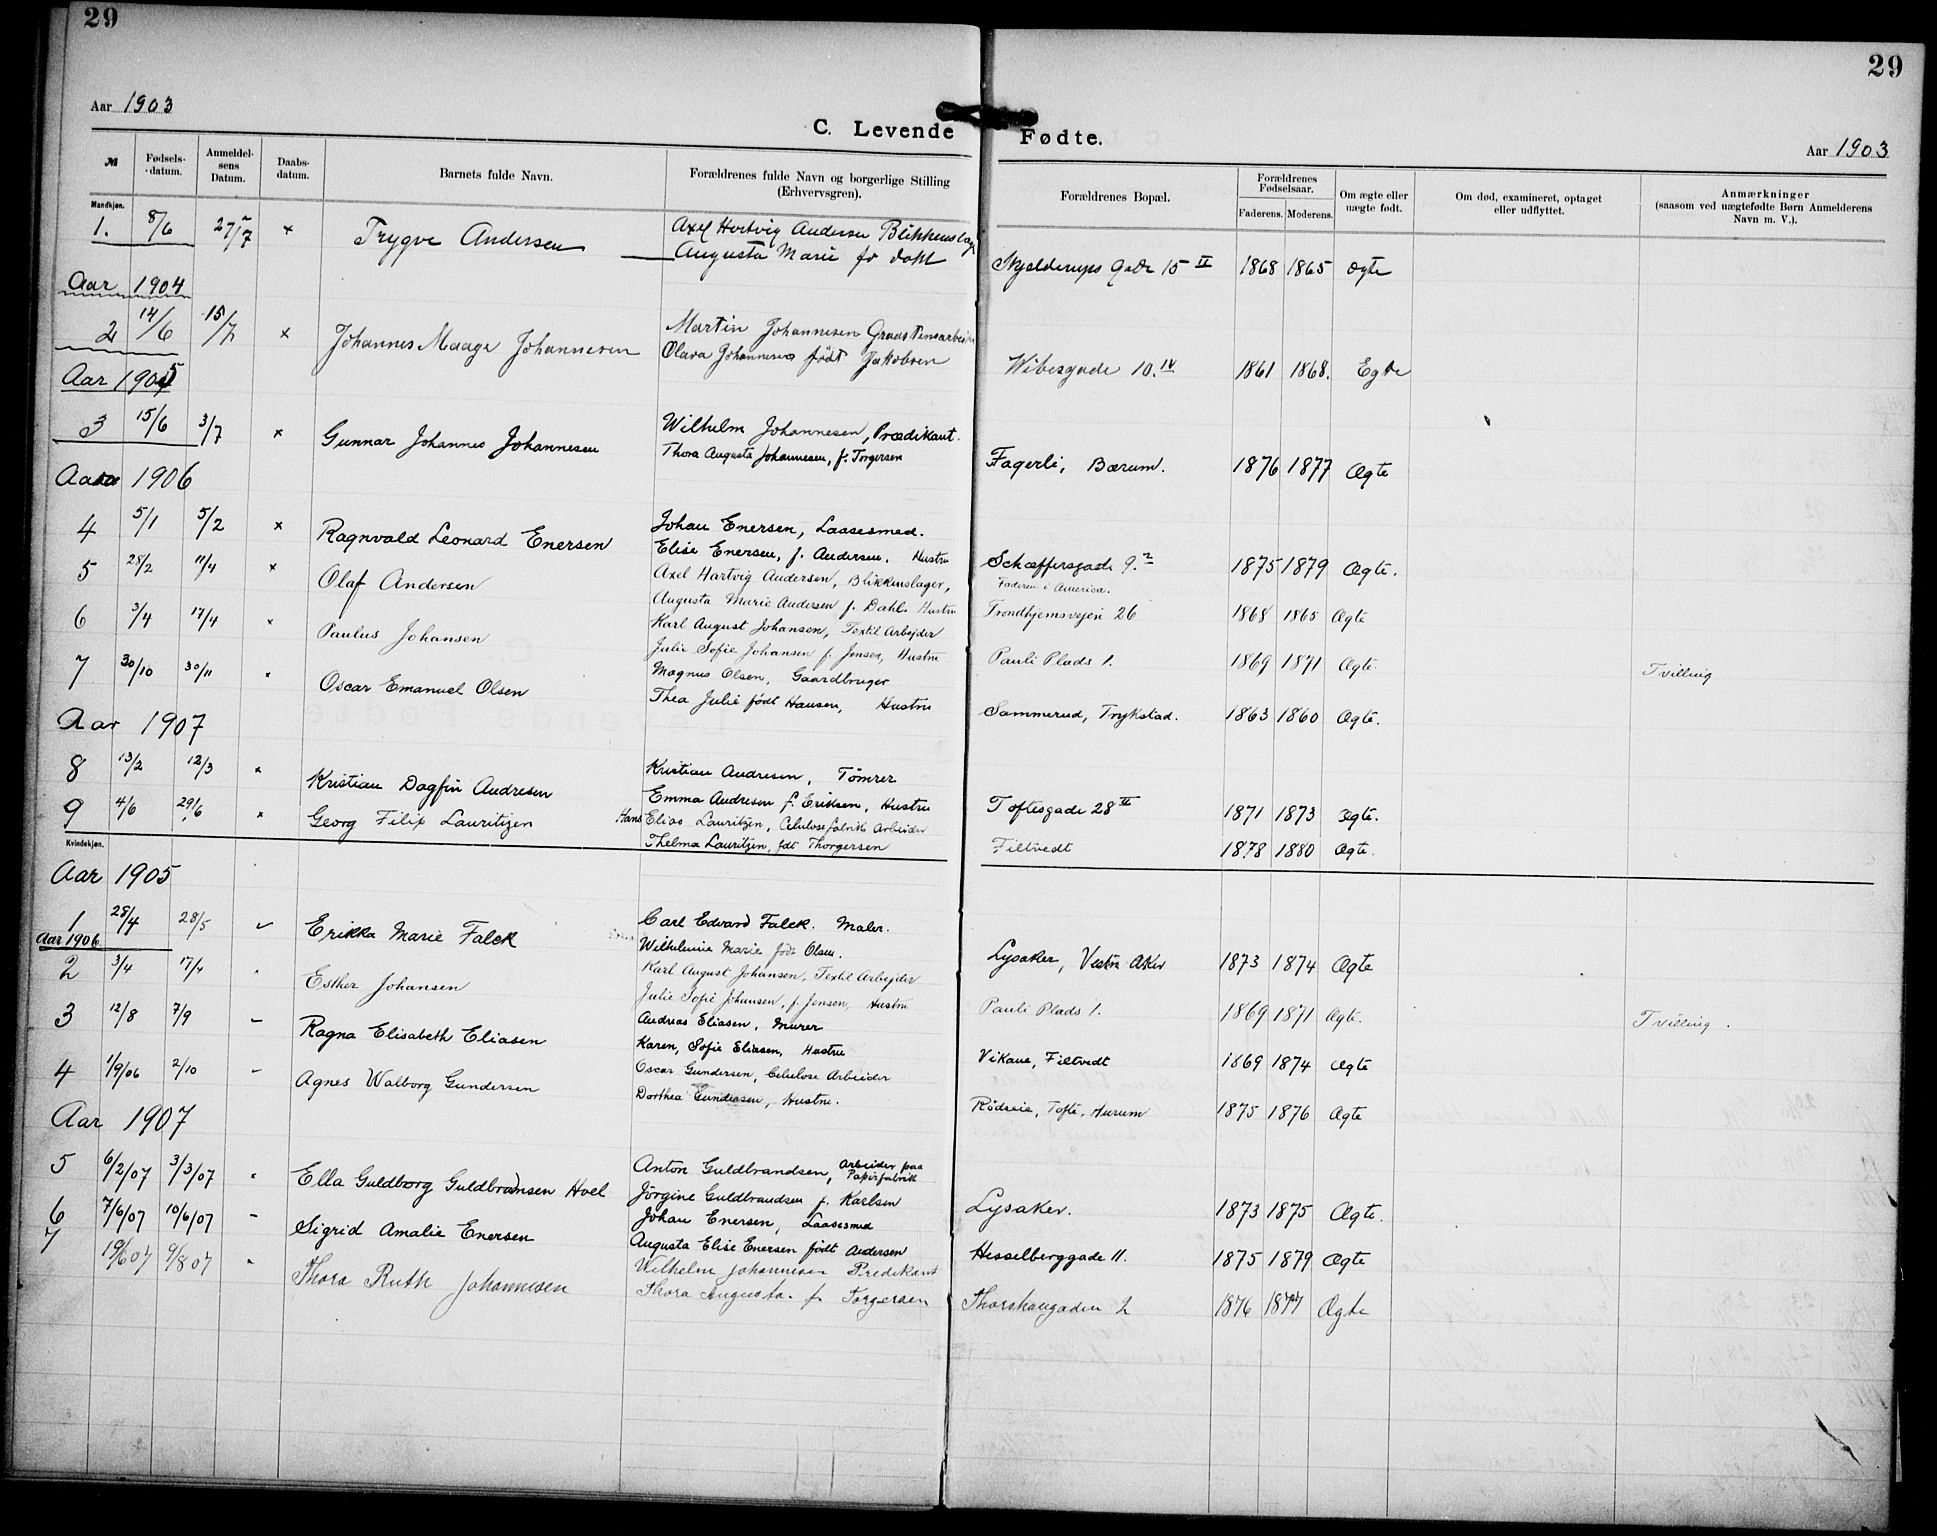 29
29
Aar 1903
C. Levende Fødte.
Aar 1903
№
Fødsels-datum.
Anmeldelsens Datum.
Daabs-datum.
Barnets fulde Navn.
Forældrenes fulde Navn og borgerlige Stilling (Erhvervsgren).
Forældrenes Bopæl.
Forældrenes Fødselsaar.
Faderens. Moderens.
Om ægte eller uægte født.
Om død, examineret, optaget eller udflyttet.
Anmærkninger (saasom ved uægtefødte Børn Anmelderens Navn m. V.).
Mandkjøn.
1. 8/6 27/7 × Trygve Andersen Axel Hartvig Andersen Blikkenslager
Augusta Marie fø Dahl Skjelderups Gade 15 II 1868 1865 ægte
Aar 1904
2 14/6 15/7 × Johannes Maage Johannesen Martin Johannesen Graastensarbeider
Olava Johannesen født Jakobsen Wibesgade 10. IV 1861 1868. Egte
Aar 1905
3 15/6 3/7 × Gunnar Johannes Johannesen Wilhelm Johannesen, Prædikant.
Thora Augusta Johannesen, f. Torgersen Fagerli, Bærum. 1876 1877 Ægte
Aar 1906
4 5/1 5/2 × Ragnvald Leonard Enersen Johan Enersen, Laasesmed.
Elise Enersen, f. Andersen. Hustru Schæffersgade 9. 2 1875 1879 Ægte.
5 28/2 11/4 × Olaf Andersen Axel Hartvig Andersen, Blikkenslager, Faderen i America.
Augusta Marie Andersen f. Dahl. Hustru Trondhjemsvejen 26 1868 1865 Ægte
6 3/4 17/4 × Paulus Johansen Karl August Johansen, Textil Arbejder
Julie Sofie Johansen f. Jensen, Hustru Pauli Plads 1. 1869 1871 Ægte. Tvilling
7 30/10 30/11 Oscar Emanuel Olsen Magnus Olsen, Gaardbruger
Thea Julie født Hansen, Hustru Sammerud, Trykstad. 1863 1860 Ægte.
Aar 1907
8 13/2 12/3 × Kristian Dagfin Andresen Kristian Andresen, Tömrer
Emma Andresen f. Eriksen, Hustru Toftesgade 28 II 1871 1873 Ægte.
9 4/6 29/6 × Georg Filip Lauritzen Hans Elias Lauritzen, Celulosefabrik Arbeider
Thelma Lauritzen, fdt Thorgersen Filtvedt 1878 1880 Ægte.
Kvindekjøn.
Aar 1905
1 28/4 28/5 Erikka Marie Falck Carl Edvard Falck. Maler.
Wilhelmine Marie født Olsen. Lysaker, Vestre Aker 1873 1874 Ægte
Aar 1906
2 3/4 17/4 Esther Johansen Karl August Johansen, Textil Arbejder
Julie Sofie Johansen, f. Jensen, Hustru Pauli Plads 1. 1869 1871 Ægte. Tvilling.
3 12/8 7/9 – Ragna Elisabeth Eliasen Andreas Eliasen, Murer
Karen, Sofie Eliasen, Hustru Vikane, Filtvedt 1869 1874 Ægte
4 1/9/06 2/10 – Agnes Walborg Gundersen Oscar Gundersen, Celulose Arbeider
Dorthea Gundersen, Hustru. Rödseie, Tofte, Hurum 1875 1876 Ægte
Aar 1907
5 6/2/07 3/3/07 Ella Guldborg Guldbrandsen Hoel Anton Guldbrandsen, Arbeider paa Papirfabrik
Jörgine Guldbrandsen f. Karlsen Lysaker. 1873 1875 Ægte.
6 7/6/07 10/6/07 – Sigrid Amalie Enersen Johan Enersen, Laasesmed
Augusta Elise Enersen født Andersen Hesselberggade 11. 1875 1879 Ægte
7 19/6 07 9/8 07 Thora Ruth Johannesen Wilhelm Johannesen Predikant
Thora Augusta. f. Torgersen Thorshaugaden 2 1876 1877 Ægte